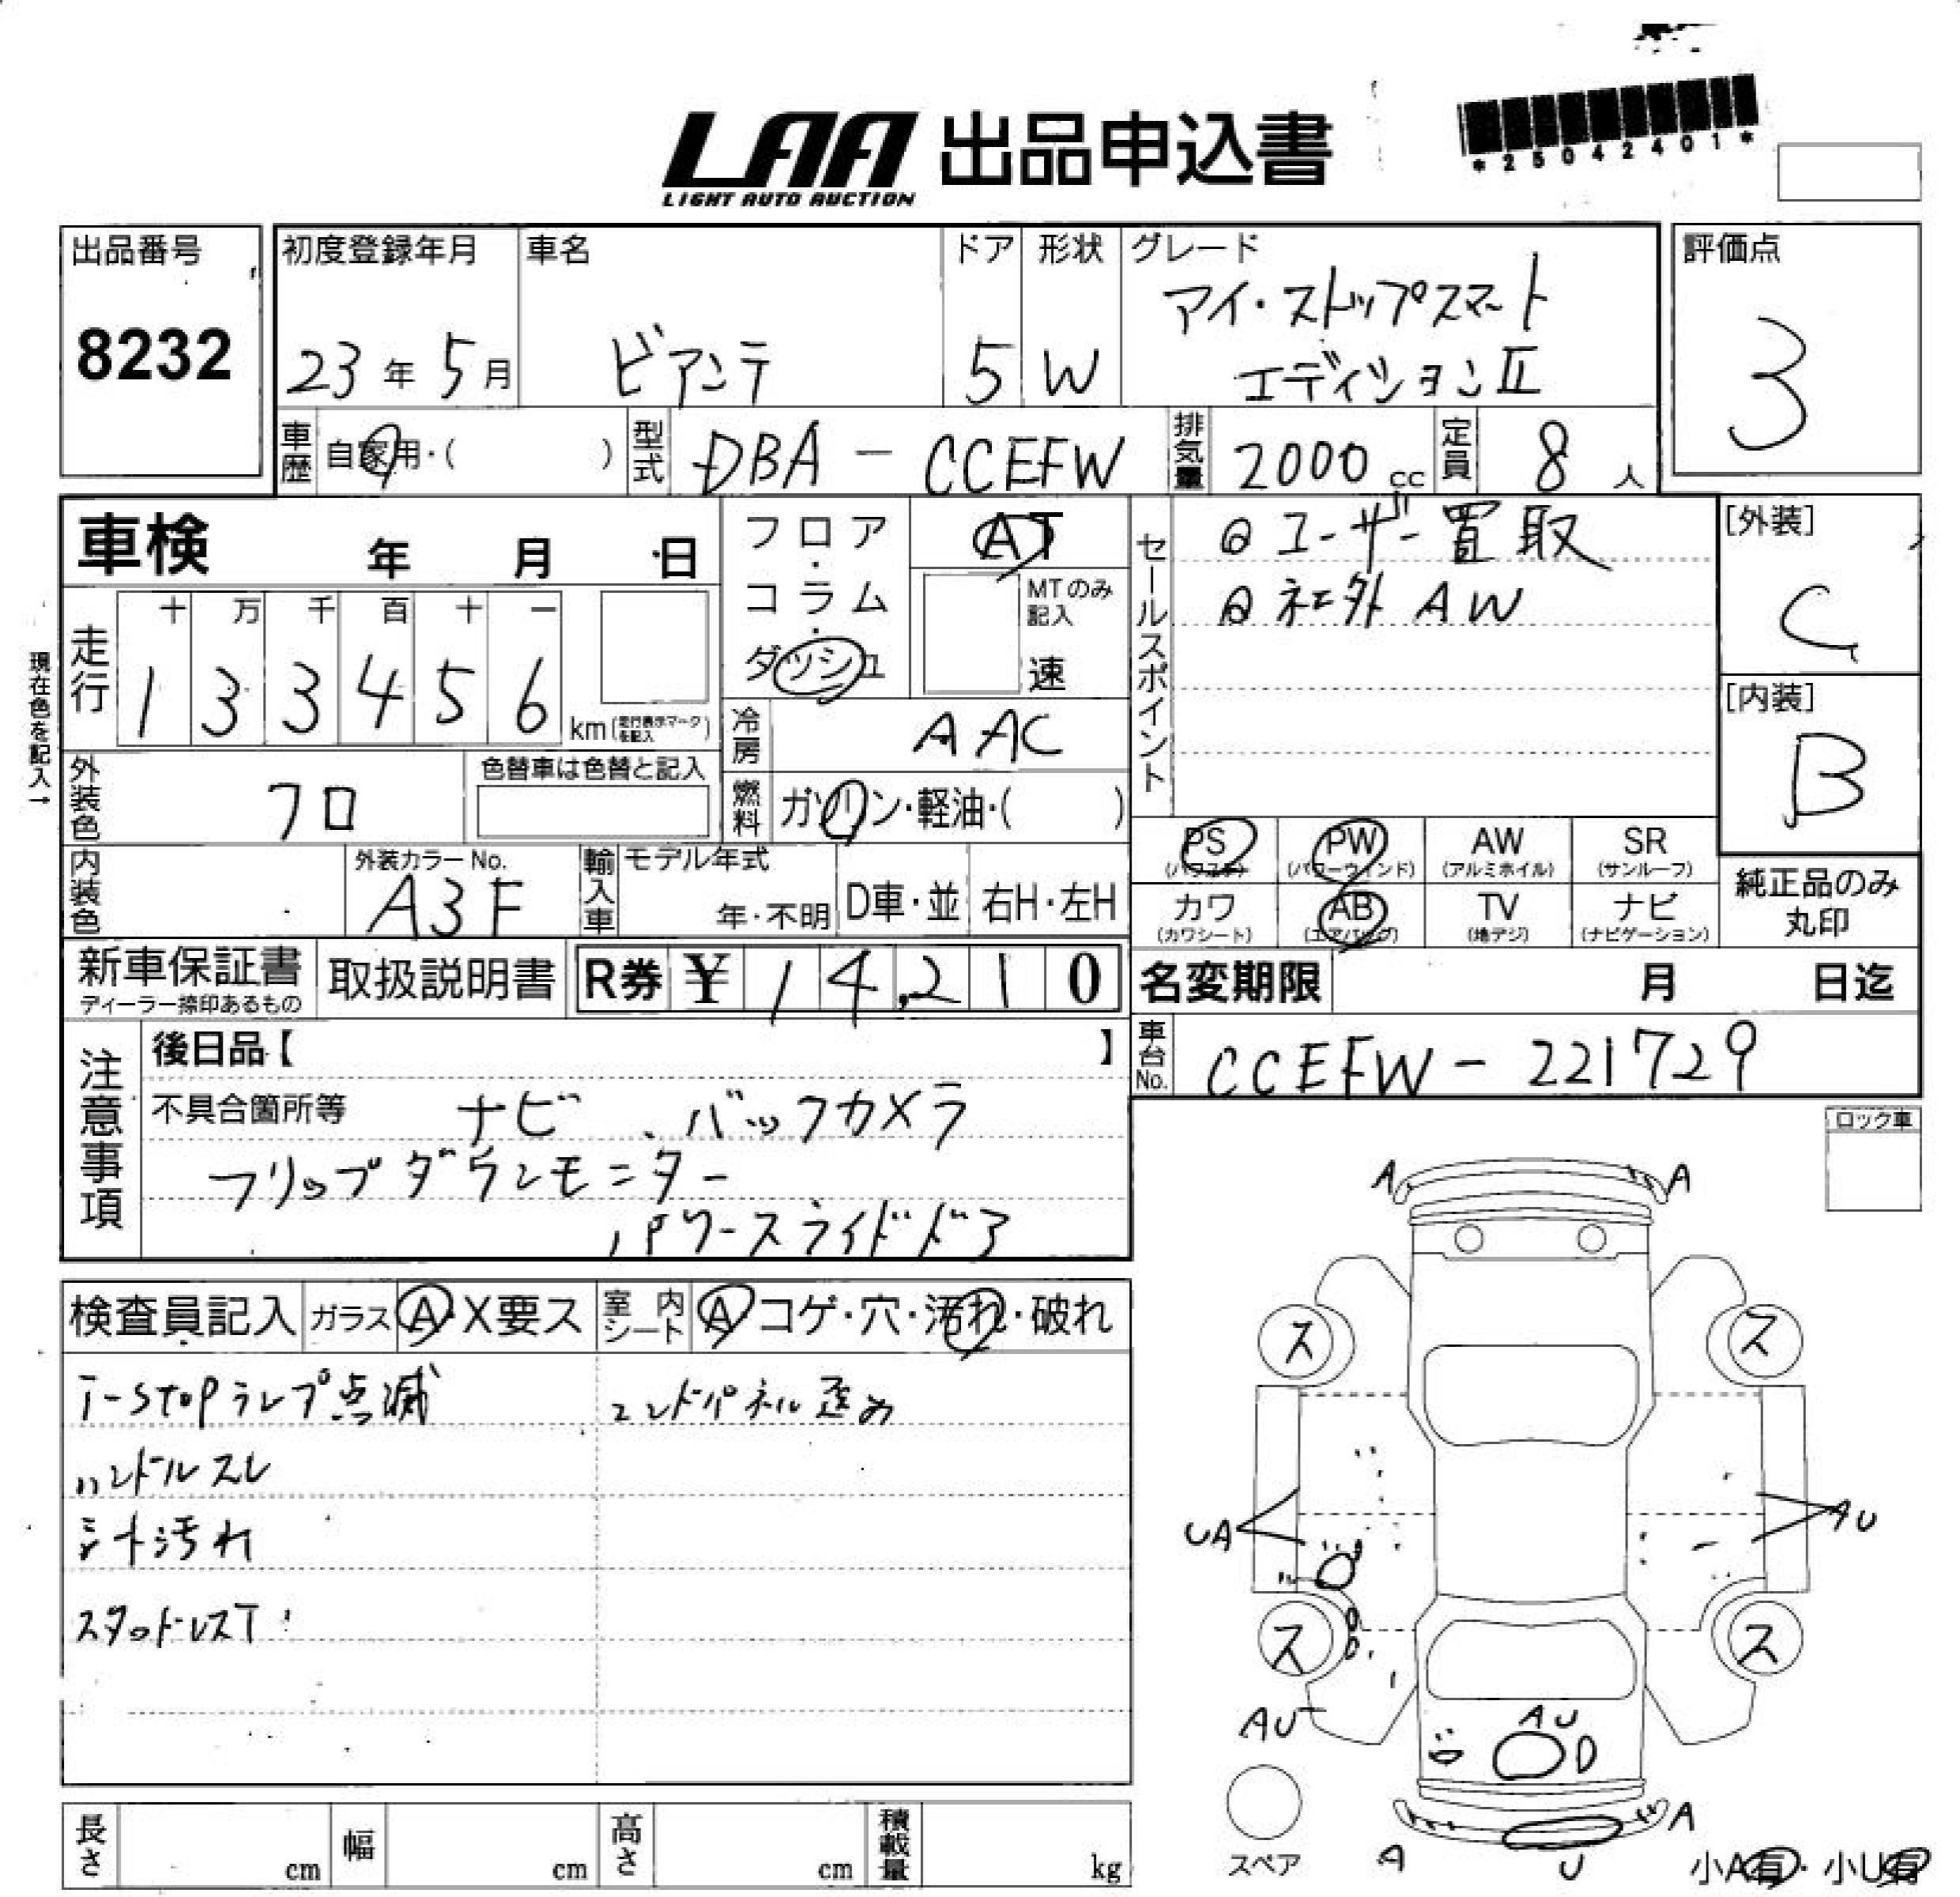 LAA 出品申込書
LIGHT AUTO AUCTION
*25042401*
出品番号
8232
初度登録年月
23年5月
車名
ビアンテ
ドア
5
形状
W
グレード
アイ・ストップスマート
エディションⅡ
評価点
3
車歴
自家用・( )
型式
DBA-CCEFW
排気量
2000cc
定員
8人
車検 年 月 日
現在色を記入→
走行
十 万 千 百 十 一
1 3 3 4 5 6
km(走行表示マークを記入)
フロア・コラム・ダッシュ
AT
MTのみ記入
速
冷房
AAC
燃料
ガソリン・軽油・( )
セールスポイント
◎ユーザー買取
◎社外AW
[外装]
C
[内装]
B
外装色
クロ
色替車は色替と記入
内装色
外装カラーNo.
A3F
輸入車
モデル年式
年・不明
D車・並
右H・左H
PS
(パワステ)
PW
(パワーウィンド)
AW
(アルミホイル)
SR
(サンルーフ)
カワ
(カワシート)
AB
(エアバッグ)
TV
(地デジ)
ナビ
(ナビゲーション)
純正品のみ
丸印
新車保証書
ディーラー捺印あるもの
取扱説明書
R券 ¥14,210
名変期限 月 日迄
車台No.
CCEFW-221729
注意事項
後日品【 】
不具合箇所等 ナビ、バックカメラ
フリップダウンモニター
パワースライドドア
ロック車
検査員記入
ガラス A・X要ス
室内シート A コゲ・穴・汚れ・破れ
i-stopランプ点滅
エンドパネル歪み
ハンドルスレ
シート汚れ
スタッドレスT
A A
ス ス
UA AU
ス ス
AU AU
スペア
A U A
小A有・小U有
長さ cm
幅 cm
高さ cm
積載量 kg